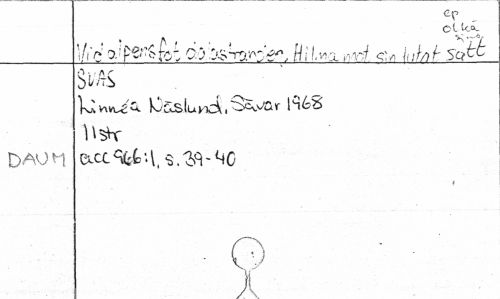 ep
olkä
Vid alpens fot då Hilma mot sin lutat satt
SVAS
Linnéa Näslund, Sävar 1968
11 str
DAUM acc 966:1, s. 39-40